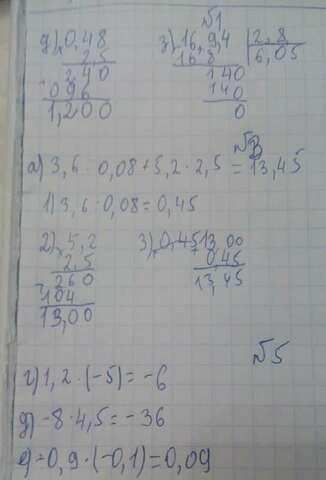 №1
д) 0,48
× 2,5
240
+ 096
1,200
з) 16,94 | 2,8
16 8 | 6,05
140
140
0
№3
а) 3,6 · 0,08 + 5,2 · 2,5 = 13,45
1) 3,6 · 0,08 = 0,45
2) × 5,2
2,5
260
+ 104
13,00
3) 13,00
+ 0,45
13,45
№5
г) 1,2 · (-5) = -6
д) -8 · 4,5 = -36
е) -0,9 · (-0,1) = 0,09